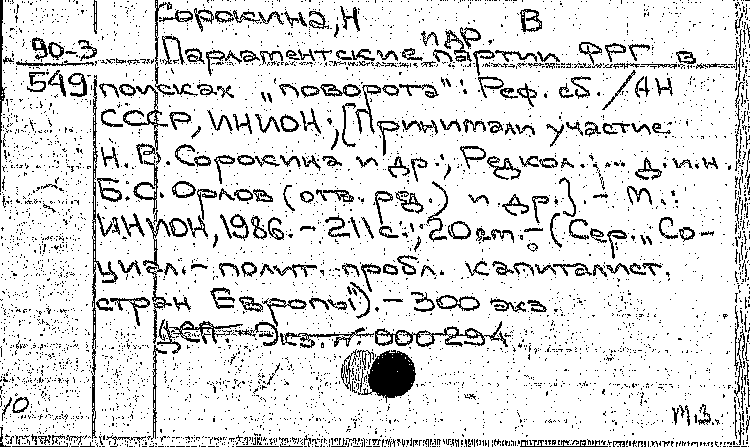 Сорокина, Н В
и др.
90-3 Парламентские партии ФРГ в
549 поисках „поворота": Реф. сб. / АН
СССР, ИНИОН; [Принимали участие:
Н. В. Сорокина и др.; Редкол.: ... д.и.н.
Б. С. Орлов (отв. ред.) и др.]. - М.:
ИНИОН, 1986. - 211 с.; 20 см. - (Сер. „Со-
циал. - полит. пробл. капиталист.
стран Европы"). - 300 экз.
ДСП. Экз. N 000294
10
М.З.